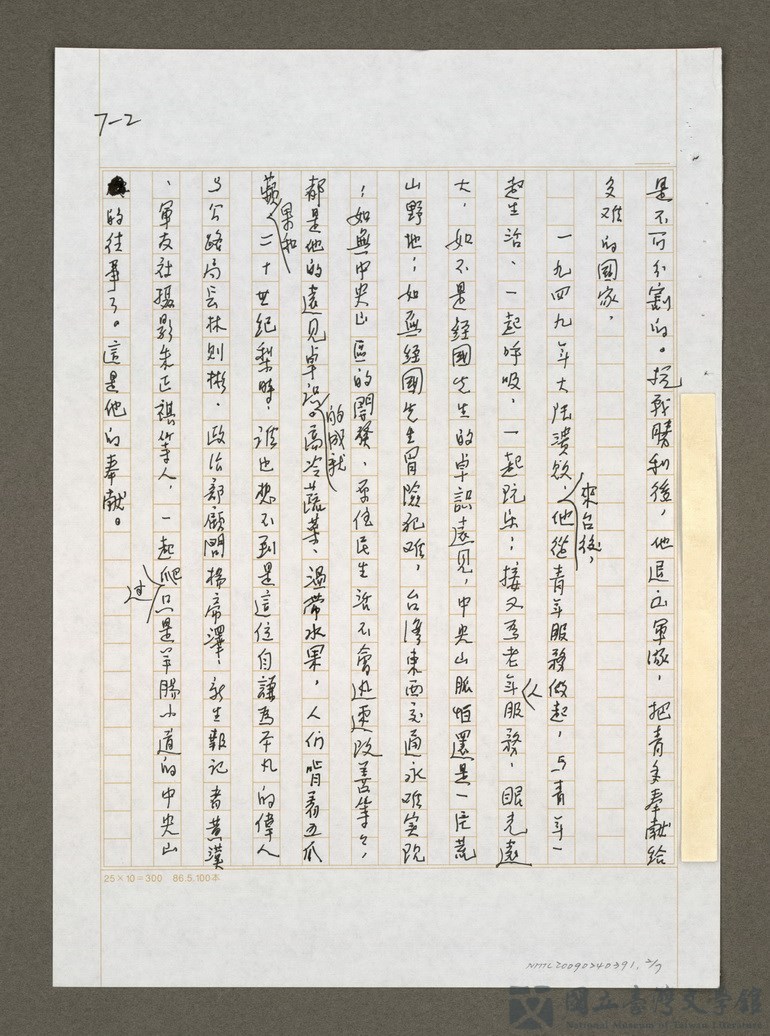 7-2
是不可分割的。抗戰勝利後，他退出軍隊，把青春奉獻給
多难的國家，
一九四九年大陆潰敗，來台後，他從青年服務做起，与青年一
起生活、一起呼吸、一起玩乐；接又為老年人服務，眼光遠
大，如不是經國先生的卓識遠見，中央山脈怕還是一片荒
山野地；如無經國先生冒險犯难，台灣東西交通永难实現
；如無中央山區的開發，原住民生活不會迅速改善等々，
都是他的遠見卓識的成就。高冷蔬菜、溫帶水果，人们啃着五爪
蘋果和二十世紀梨時，誰也想不到是這位自謙為平凡的偉人
与公路局長林則彬，政治部顧問楊帝澤，新生報記者黃漢
、軍友社攝影朱正祺等人，一起爬过只是羊腸小道的中央山
的往事了。這是他的奉献。
25×10=300 86.5.100本
NMTL20090240391, 2/7
國立臺灣文學館
National Museum of Taiwan Literature